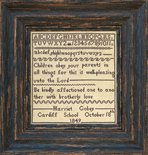 ABCDEFGHIJKLMNOPQRS
TUVWXYZ 1234567891011
abcdefghijklmnopqrstuvwxyz
Children obey your parents in
all things for this is well pleasing
unto the Lord
Be kindly affectioned one to ano
ther with brotherly love
Harriet
Cardiff School October 18
1849